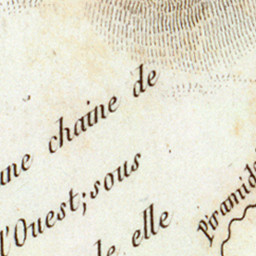 une chaine de
l'Ouest; sous
de elle
Piramide